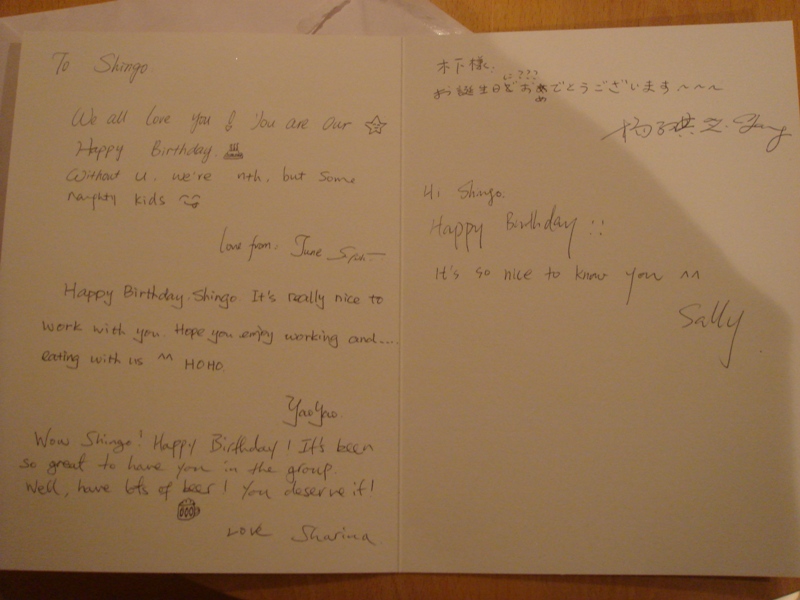 To Shingo
We all love you! You are our ☆
Happy Birthday.
Without u, we're nth, but some
naughty kids
love from: June
Happy Birthday. Shingo. It's really nice to
work with you. Hope you enjoy working and....
eating with us ^^ HOHO.
YaoYao.
Wow Shingo! Happy Birthday! It's been
so great to have you in the group.
Well, have lots of beer! You deserve it!
Love Sharina
木下様:
に???
お誕生日をおめでとうございます~~~
め
Hi Shingo:
Happy Birthday ::
It's so nice to know you ^^
Sally